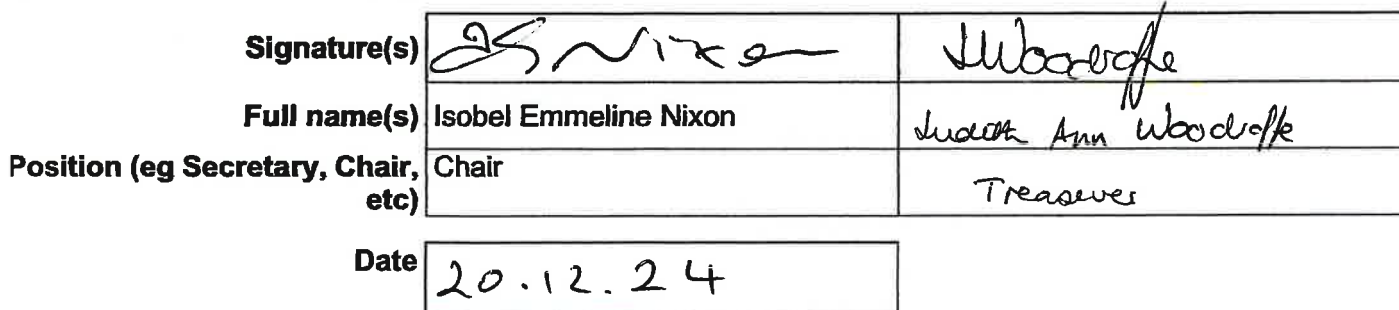 Signature(s) Nixon JWoodroffe
Full name(s) Isobel Emmeline Nixon Judith Ann Woodroffe
Position (eg Secretary, Chair, Chair Treasurer
etc)
Date 20.12.24